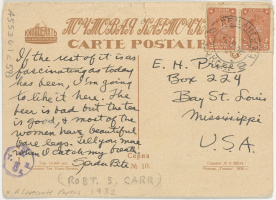 ПОЧТОВАЯ КАРТОЧКА
CARTE POSTALE
If the rest of it is
fascinating as today
has been, I'm going
to like it here. The
beer is bad but the tea
is good, & most of the
women have beautiful
bare legs. Tell you more
when I catch my breath
E. H. Price
Box 224
Bay St. Louis
Mississippi
U.S.A.
Серия
№ 10.
(ROBT. S. CARR)
1932